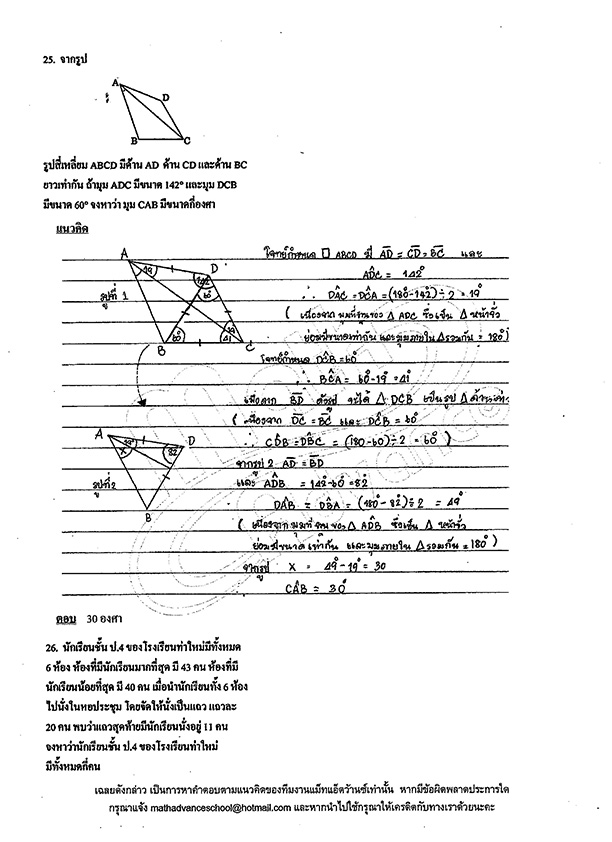 25. จากรูป
A
D
B
C
รูปสี่เหลี่ยม ABCD มีด้าน AD ด้าน CD และด้าน BC
ยาวเท่ากัน ถ้ามุม ADC มีขนาด 142° และมุม DCB
มีขนาด 60° จงหาว่า มุม CAB มีขนาดกี่องศา
แนวคิด
โจทย์กำหนด □ ABCD มี AD = CD = BC และ
ADC = 142°
∴ DAC = DCA = (180°-142°) ÷ 2 = 19°
( เนื่องจาก มุมที่ฐานของ △ ADC ซึ่งเป็น △ หน้าจั่ว
ย่อมมีขนาดเท่ากัน และมุมภายใน △ รวมกัน = 180°)
โจทย์กำหนด DCB = 60°
∴ BCA = 60°-19° = 41°
A
19
D
142
60
รูปที่ 1
60
19
41
B
C
เมื่อลาก BD ดังรูป จะได้ △ DCB เป็นรูป △ ด้านเท่า
( เนื่องจาก DC = BC และ DCB = 60°
∴ CDB = DBC = (180-60) ÷ 2 = 60° )
จากรูป 2 AD = BD
และ ADB = 142°-60° = 82°
DAB = DBA = (180°- 82°) ÷ 2 = 49°
( เนื่องจากมุมที่ฐานของ △ ADB ซึ่งเป็น △ หน้าจั่ว
ย่อมมีขนาดเท่ากัน และมุมภายใน △ รวมกัน = 180°)
จากรูป X = 49°- 19° = 30
CAB = 30°
A
19
X
D
82
รูปที่2
B
ตอบ 30 องศา
26. นักเรียนชั้น ป.4 ของโรงเรียนท่าใหม่มีทั้งหมด
6 ห้อง ห้องที่มีนักเรียนมากที่สุด มี 43 คน ห้องที่มี
นักเรียนน้อยที่สุด มี 40 คน เมื่อนำนักเรียนทั้ง 6 ห้อง
ไปนั่งในหอประชุม โดยจัดให้นั่งเป็นแถว แถวละ
20 คน พบว่าแถวสุดท้ายมีนักเรียนนั่งอยู่ 11 คน
จงหาว่านักเรียนชั้น ป.4 ของโรงเรียนท่าใหม่
มีทั้งหมดกี่คน
เฉลยดังกล่าว เป็นการหาคำตอบตามแนวคิดของทีมงานแม็ทแอ็ดว้านซ์เท่านั้น หากมีข้อผิดพลาดประการใด
กรุณาแจ้ง mathadvanceschool@hotmail.com และหากนำไปใช้กรุณาให้เครดิตกับทางเราด้วยนะคะ